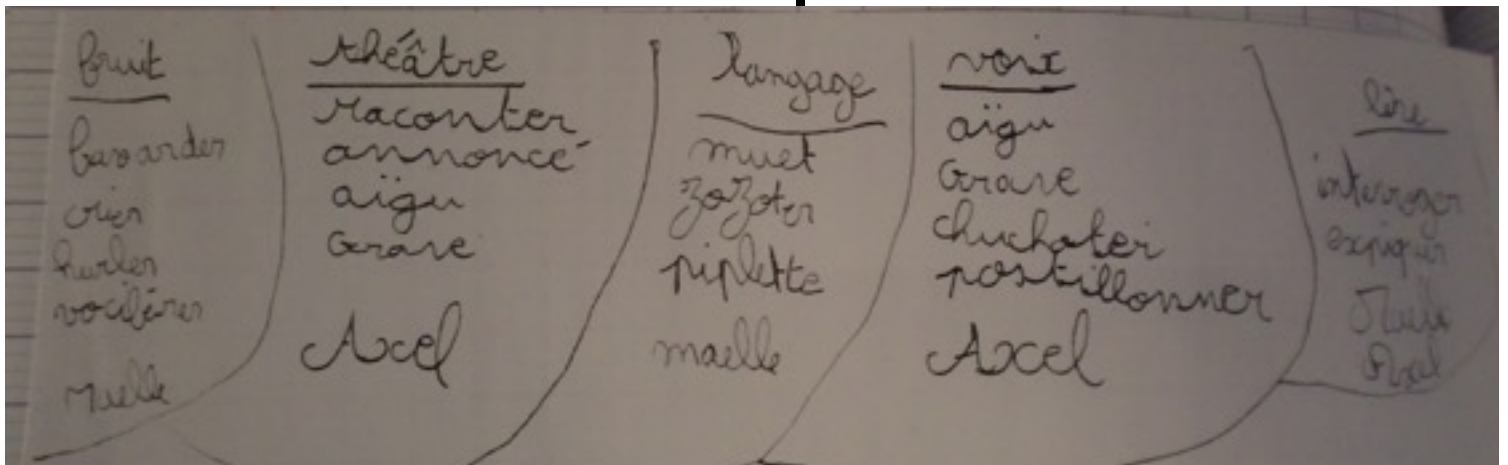 bruit
bavarder
crier
hurler
vociférer
maelle
théâtre
raconter
annoncé
aïgu
Grave
Axel
langage
muet
zozoter
piplette
maelle
voix
aïgu
Grave
chuchoter
postillonner
Axel
lire
interroger
expiquer
Maelle
Axel